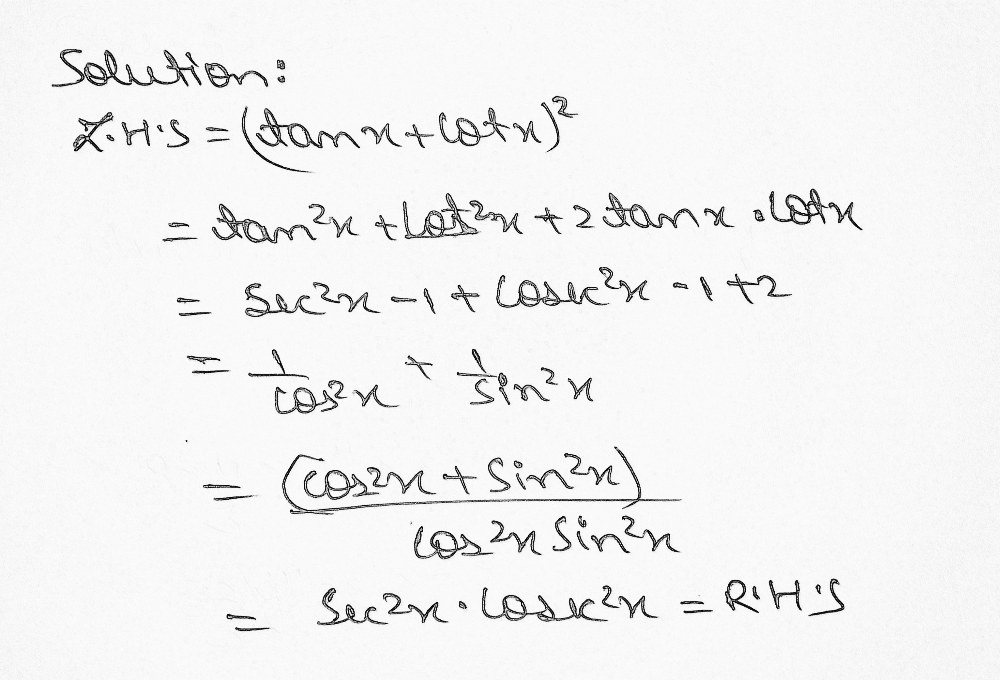 Solution:
L.H.S = (tanx + cotx)²
= tan²x + cot²x + 2 tanx . cotx
= Sec²x - 1 + Cosec²x - 1 + 2
= 1/cos²x + 1/sin²x
= (cos²x + Sin²x)/cos²x Sin²x
= Sec²x . Cosec²x = R.H.S